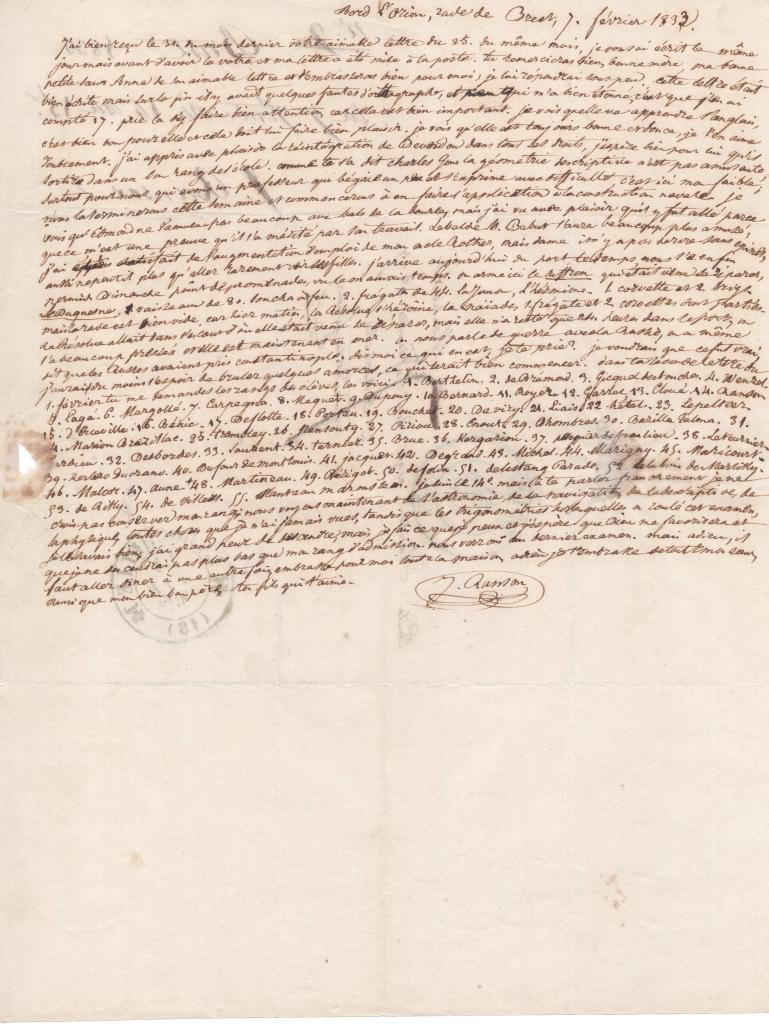 Bord l'Orion, rade de Brest, 7. février 1833
J'ai bien reçu le 31. du mois dernier votre aimable lettre du 25. du même mois, je vous ai écrit le même
jour mais avant d'avoir la votre et ma lettre a été mise à la poste. tu remercieras bien, bonne mère, ma bonne
petite sœur Anne de son aimable lettre et l'embrasseras bien pour moi; je lui répondrai sous peu, cette lettre était
bien écrite mais sur la fin il y avait quelques fautes d'orthographe, et qui m'a bien étonné, c'est que j'en ai
compté 17. prie la d'y faire bien attention car cela est bien important. je vois qu'elle va apprendre l'anglais
c'est bien bon pour elle et cela doit lui faire bien plaisir. je vois qu'elle est toujours bonne et douce, je l'en aime
doublement. j'ai appris avec plaisir la réintégration de dans tous ses droits, j'espère bien pour lui qu'il
sortira dans un bon rang de l'école. comme te l'a dit Charles Gon la géométrie descriptive n'est pas amusante
surtout pour nous qui avons un professeur qui bégaie un peu et s'exprime avec difficulté, c'est ici mon faible;
nous la terminerons cette semaine et commencerons à en faire l'application à la construction navale. je
vois qu'Edmond ne s'amuse pas beaucoup aux bals de la mais j'ai vu avec plaisir qu'il y fut allé parce
que ce m'est une preuve qu'il l'a mérité par son travail. Le bal de M. l'aura beaucoup plus amusé;
j'ai satisfait de l'augmentation d'emploi de mon oncle Rother, mais dame il n'y a pas de rose sans épines,
aussi ne pourra-t-il plus qu'aller rarement voir les filles. j'arrive aujourd'hui du port le temps nous l'a enfin
permis Dimanche point de promenades, vu le mauvais temps. on arme ici le Suffren qui était même de 2 pared,
le Duquesne, 1 vaisseau de 80. bouches à feu. 2. frégates de 44. la Junon, l'hermione. 1 corvette et 2 bricks
mais la rade est bien vide, car hier matin, la Résolue, l'héroïne, la naïade, 1 frégate et 2 corvettes sont parties.
la Résolue allait dans l'escaut d'où elle était venu se réparer, mais elle n'a resté que 24. heures dans le port, on
l'a beaucoup pressée et elle est maintenant en mer. on nous parle de guerre avec la Russie, on a même
dit que les Russes avaient pris constantinople. dis moi ce qui en est, je te prie? je voudrais que ce fut vrai
j'aurais du moins l'espoir de bruler quelques amorces, ça qui serait bien commencer. dans ta seconde lettre du
1. février tu me demandes les rangs des élèves, les voici. 1. Berthelin. 2. de Dramond. 3. Gicquel des touches. 4. Wenzel.
5. Pagé. 6. Margollé. 7. Carpegna. 8. Maguet. 9. Dupouy. 10. Bernard. 11. Royer. 12. Garrel. 13. Cloué. 14. Ranson.
15. d'Herville. 16. Béhic. 17. Deslotte. 18. Porteu. 19. Bouchet. 20. De virz. 21. Liais. 22. hétel. 23. Lepeltier.
24. Marion Brézillac. 25. tremblay. 26. Pansouty. 27. Piriou. 28. Crouet. 29. Dhombres. 30. Barilla Palma. 31.
32. Desbordes. 33. Laurent. 34. tarnier. 35. Brue. 36. Kergariou. 37. 38. Letourneur
39. Kerléro du crano. 40. Dufour de montlouis. 41. jacquet. 42. Degrand. 43. Michel. 44. Marigny. 45. Maricourt.
46. Malcor. 47. Aune. 48. Martineau. 49. Périgot. 50. de Solin. 51. de lestang Parade. 52. de lubin de Martilly.
53. de Railly. 54. de villers. 55. Manteau marmstein. je suis le 14e. mais là te parler franchement je ne
crois pas conserver mon rang, nous voyons maintenant de l'astronomie, de la navigation, de la descriptive, de
la physique, toutes choses que je n'ai jamais vues, tandis que les trigonométries sur lesquelles a roulé cet examen,
je les savais bien; j'ai grand peur de descendre, mais je fais ce que je peux et j'espère que dieu me favorisera et
que je ne descendrai pas plus bas que mon rang d'admission. nous verrons au dernier examen. mais adieu, il
faut aller diner à une autre fois, embrasse pour moi toute la maison, adieu je t'embrasse de tout mon cœur,
ainsi que mon bien bon père, ton fils qui t'aime.
J. Ranson
(15)